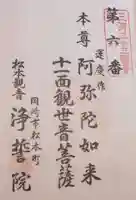 第六番
本尊 阿弥陀如来
運慶作
十一面観世音菩薩
岡崎市松本町
松本観音 浄誓院